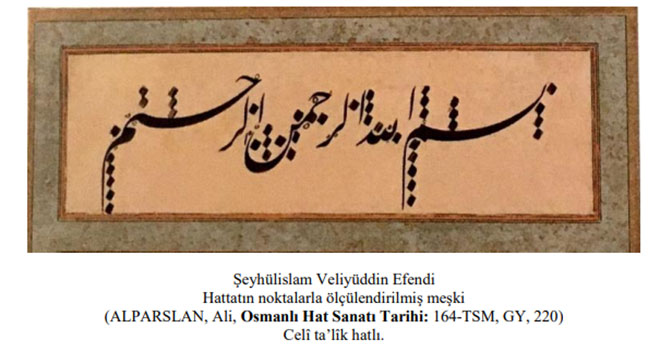 بسم الله الرحمن الرحيم
Şeyhülislam Veliyüddin Efendi
Hattatın noktalarla ölçülendirilmiş meşki
(ALPARSLAN, Ali, Osmanlı Hat Sanatı Tarihi: 164-TSM, GY, 220)
Celî ta’lîk hatlı.